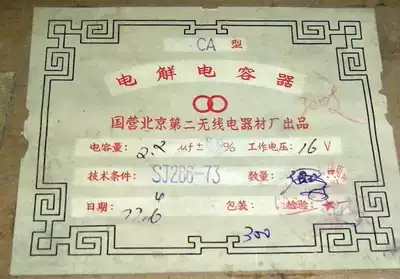 CA 型
电解电容器
国营北京第二无线电器材厂出品
电容量: 2.2 μf± % 工作电压: 16 V
技术条件: SJ206-73 数量:
日期: 包装: 检验:
300